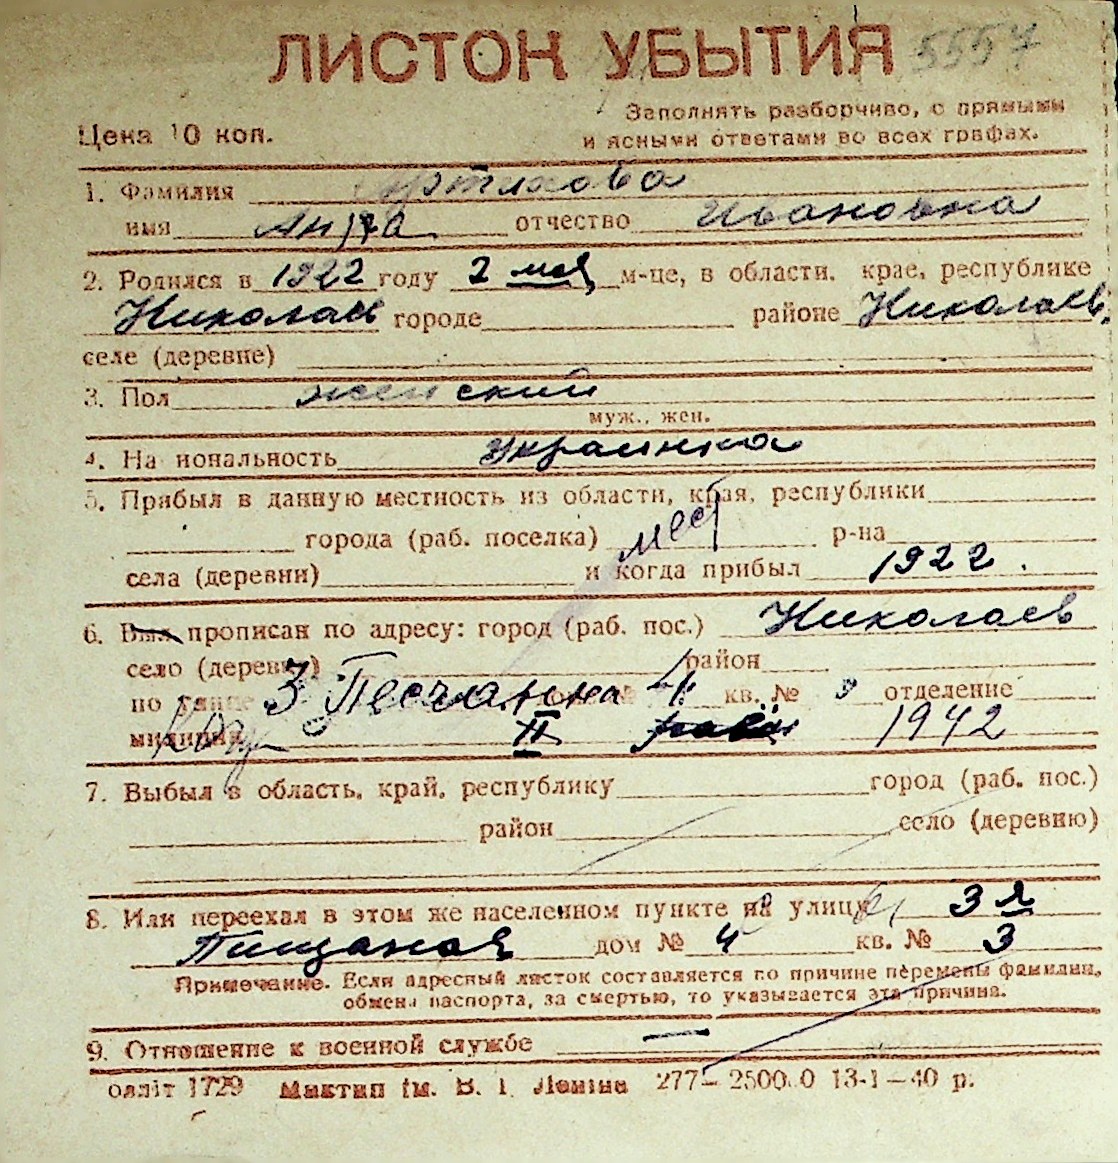 ЛИСТОК УБЫТИЯ 5557
Заполнять разборчиво, с прямыми
Цена 10 коп. и ясными ответами во всех графах.
1. Фамилия
имя Анна отчество Ивановна
2. Родился в 1922 году 2 мая м-це, в области, крае, республике
Николаев городе районе Николаев.
селе (деревне)
3. Пол женский
муж., жен.
4. На иональность Украинка
5. Прибыл в данную местность из области, края, республики
города (раб. поселка) мест р-на
села (деревни) и когда прибыл 1922.
6. Был прописан по адресу: город (раб. пос.) Николаев
село (деревня) район
по 3 Песчанна 4 кв. № отделение
милиции II 1942
7. Выбыл в область, край, республику город (раб. пос.)
район село (деревню)
8. Или переехал в этом же населенном пункте на улицу 3я
Пищаная дом № 4 кв. № 3
Примечание. Если адресный листок составляется по причине перемены фамилии,
обмена паспорта, за смертью, то указывается эта причина.
9. Отношение к военной службе —
олліт 1729 Миктип ім. В. І. Леніна 277—2500.0 13-1—40 р.